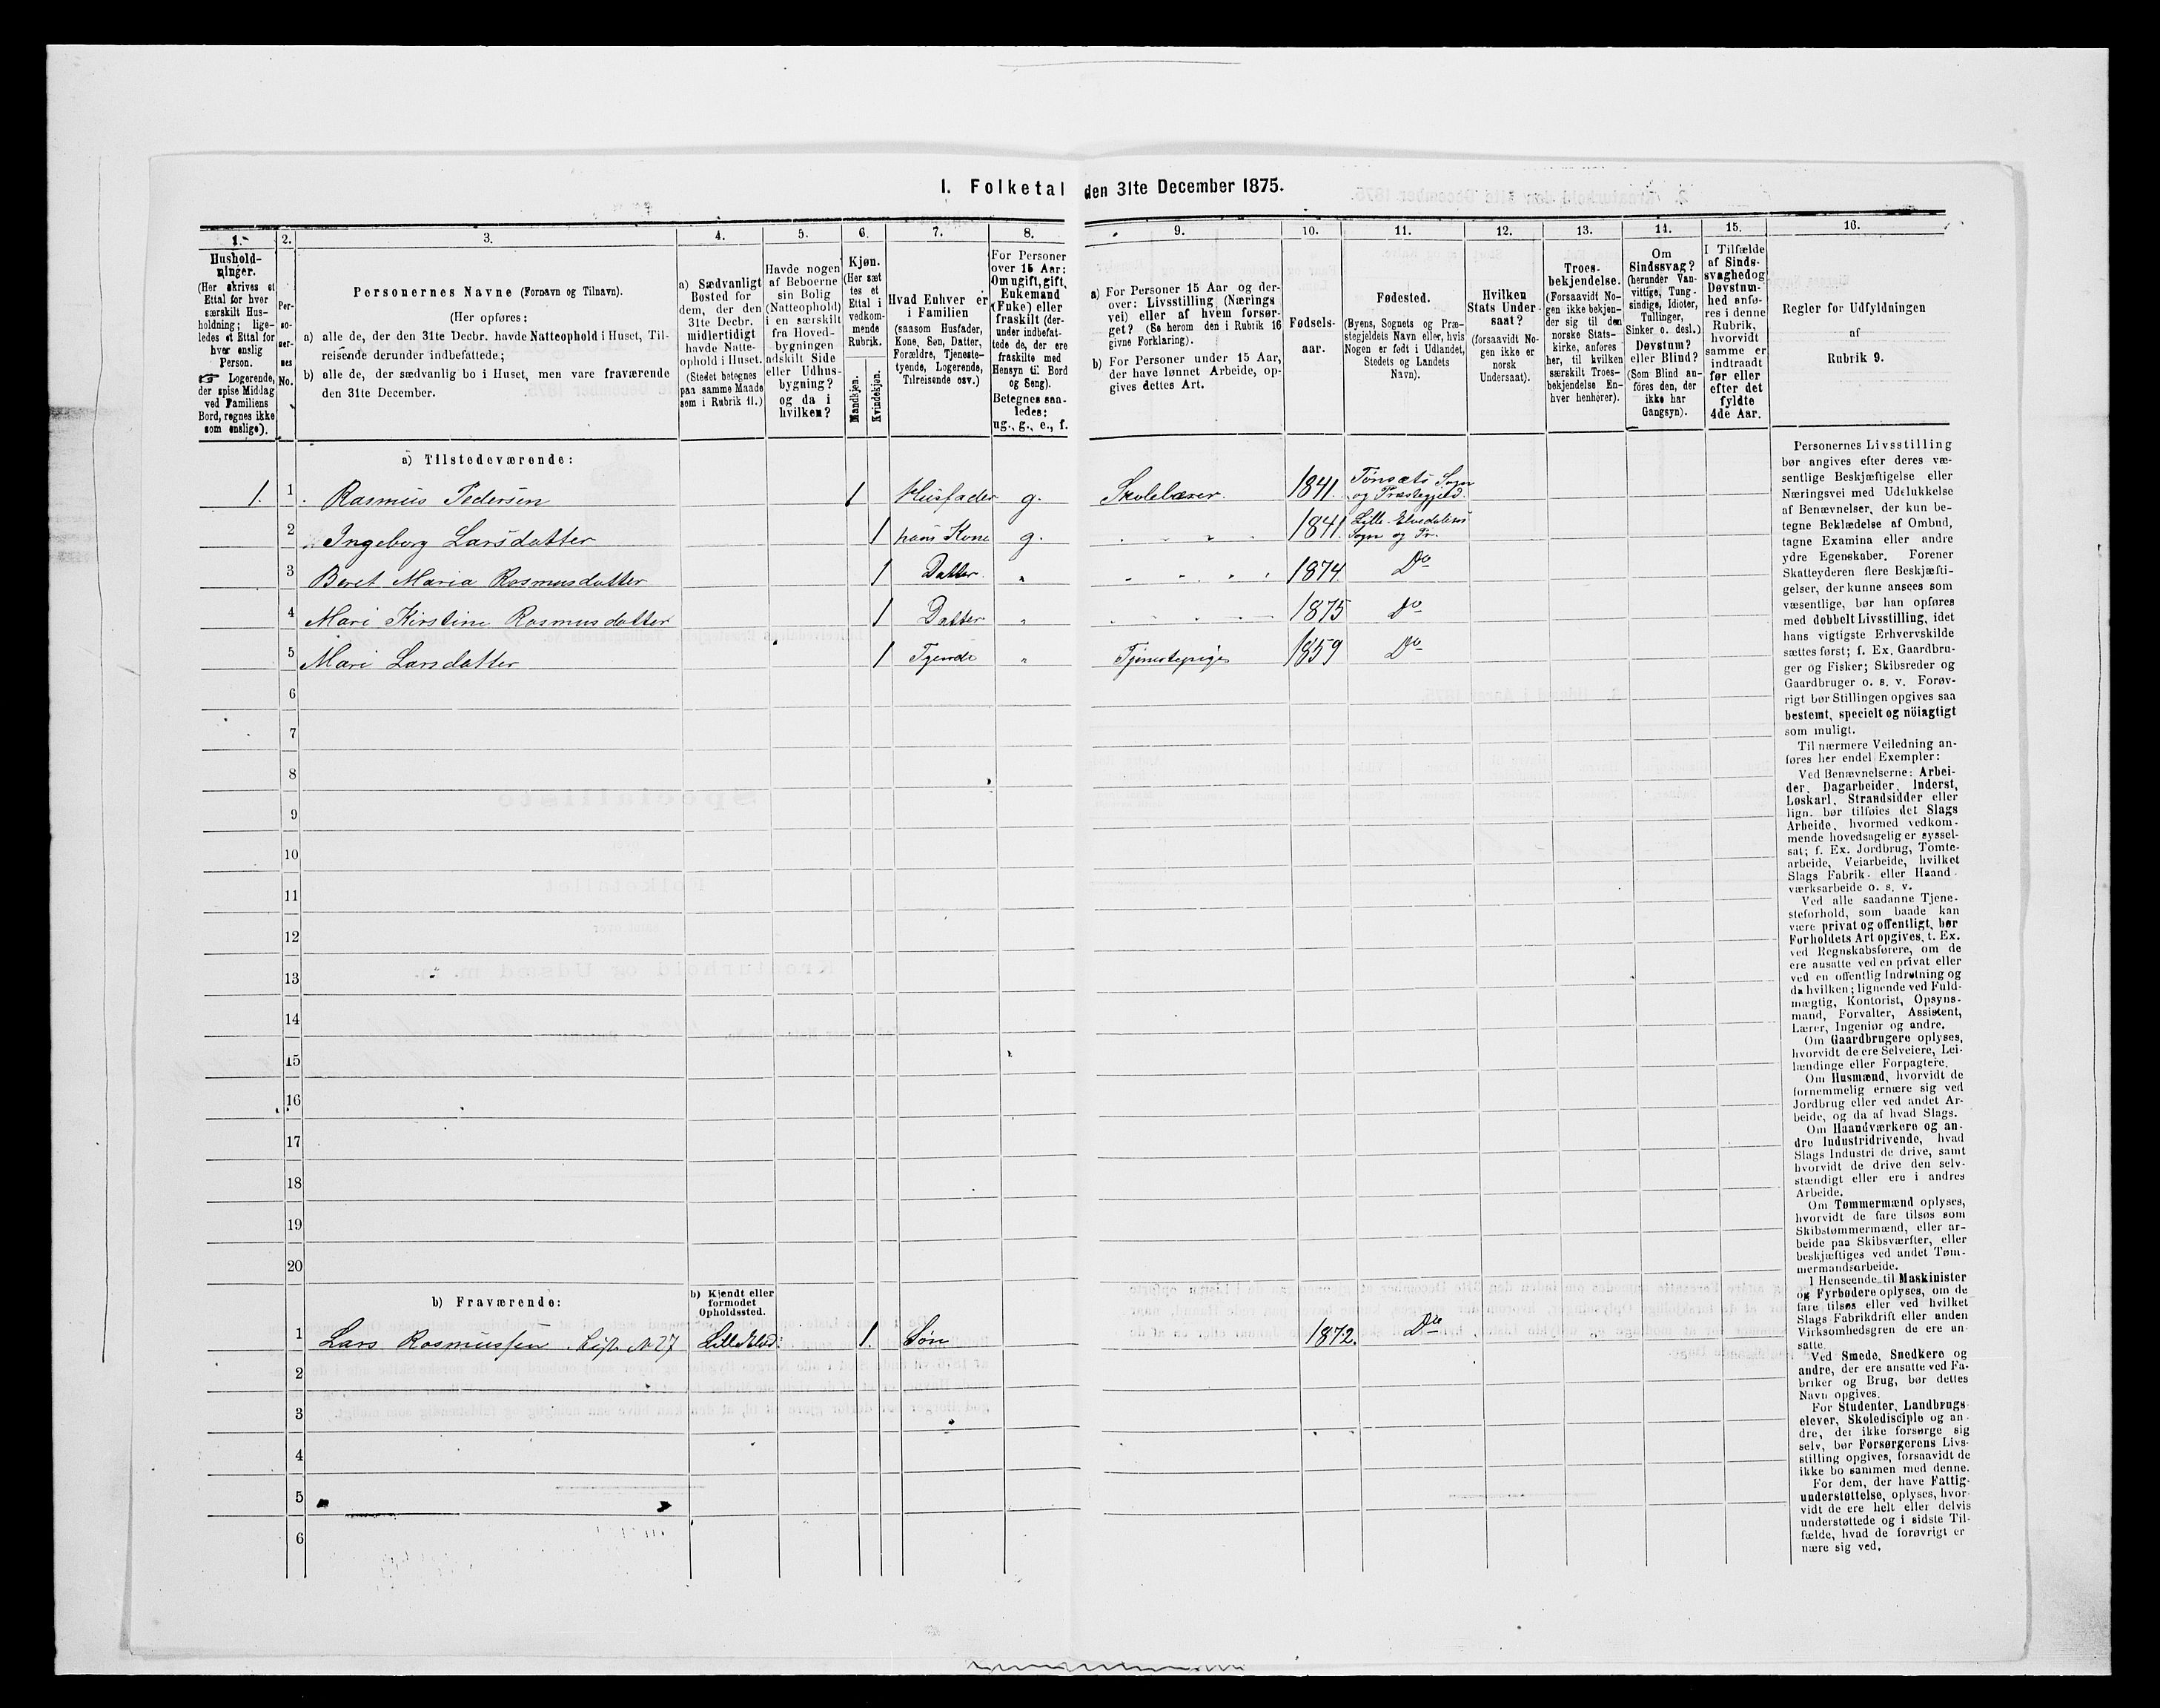 1. Folketal den 31te December 1875.
1.
Hushold-
ninger.
(Her skrives et
Ettal for hver
særskilt Hus-
holdning; lige-
ledes et Ettal for
hver enslig
Person.
☞ Logerende,
der spise Middag
ved Familiens
Bord, regnes ikke
som enslige).
2.
Per-
so-
ner-
nes
No.
3.
Personernes Navne (Fornavn og Tilnavn).
(Her opføres:
a) alle de, der den 31te Decbr. havde Natteophold i Huset, Til-
reisende derunder indbefattede;
b) alle de, der sædvanlig bo i Huset, men vare fraværende
den 31te December.
4.
a) Sædvanligt
Bosted for
dem, der den
31te Decbr.
midlertidigt
havde Natte-
ophold i Huset.
(Stedet betegnes
paa samme Maade
som i Rubrik 11.)
5.
Havde nogen
af Beboerne
sin Bolig
(Natteophold)
i en særskilt
fra Hoved-
bygningen
adskilt Side
eller Udhus-
bygning?
og da i
hvilken?
6.
Kjøn.
(Her sæt
tes et
Ettal i
vedkom-
mende
Rubrik.
Mandkjøn.
Kvindekjøn.
7.
Hvad Enhver er
i Familien
(saasom Husfader,
Kone, Søn, Datter,
Forældre, Tjeneste-
tyende, Logerende,
Tilreisende osv.)
8.
For Personer
over 15 Aar:
Om ugift, gift,
Enkemand
(Enke) eller
fraskilt (der-
under indbefat-
tede de, der ere
fraskilte med
Hensyn til Bord
og Seng).
Betegnes saa-
ledes:
ug., g., e., f.
9.
a) For Personer 15 Aar og der-
over: Livsstilling (Nærings
vei) eller af hvem forsør-
get? (Se herom den i Rubrik 16
givne Forklaring).
b) For Personer under 15 Aar,
der have lønnet Arbeide, op-
gives dettes Art.
10.
Fødsels-
aar.
11.
Fødested.
(Byens, Sognets og Præ-
stegjeldets Navn eller, hvis
Nogen er født i Udlandet,
Stedets og Landets
Navn).
12.
Hvilken
Stats Under-
saat?
(forsaavidt No-
gen ikke er
norsk
Undersaat).
13.
Troes-
bekjendelse.
(Forsaavidt No-
gen ikke bekjen-
der sig til den
norske Stats-
kirke, anføres
her, til hvilken
særskilt Troes-
bekjendelse En-
hver henhører).
14.
Om
Sindssvag?
(herunder Van-
vittige, Tung-
sindige, Idioter,
Tullinger,
Sinker o. desl.)
Døvstum?
eller Blind?
(Som Blind an-
føres den, der
ikke har
Gangsyn).
15.
I Tilfælde
af Sinds-
svaghed og
Døvstum-
hed anfø-
res i denne
Rubrik,
hvorvidt
samme er
indtraadt
før eller
efter det
fyldte
4de Aar.
16.
Regler for Udfyldningen
af
Rubrik 9.
a) Tilstedeværende:
1. 1 Rasmus Pedersen 1 Husfader g. Skolelærer. 1841. Tönsæts Sogn
og Præstegjeld.
2 Ingeborg Larsdatter 1 hans Kone g. 1841. Lille-Elvedalens
Sogn og Pr.
3 Beret Maria Rasmusdatter 1 Datter. " 1874 Do
4 Mari Kirstine Rasmusdatter 1 Datter " 1875 Do
5 Mari Larsdatter 1 Tyende " Tjenestepige 1859 Do
6
7
8
9
10
11
12
13
14
15
16
17
18
19
20
b) Fraværende:
b) Kjendt eller
formodet
Opholdssted.
1 Lars Rasmussen. Liste N 27 Lille Elvd: 1. Søn 1872. Do
2
3
4
5
6
Personernes Livsstilling
bør angives efter deres væ-
sentlige Beskjæftigelse eller
Næringsvei med Udelukkelse
af Benævnelser, der kun be-
tegne Beklædelse af Ombud,
tagne Examina eller andre
ydre Egenskaber. Forener
Skatteyderen flere Beskjæfti-
gelser, der kunne ansees som
væsentlige, bør han opføres
med dobbelt Livsstilling, idet
hans vigtigste Erhvervskilde
sættes først; f. Ex. Gaardbru-
ger og Fisker; Skibsreder og
Gaardbruger o. s. v. Forøv-
rigt bør Stillingen opgives saa
bestemt, specielt og nöiagtigt
som muligt.
Til nærmere Veiledning an-
føres her endel Exempler:
Ved Benævnelserne: Arbei-
der, Dagarbeider, Inderst,
Løskarl, Strandsidder eller
lign. bør tilføies det Slags
Arbeide, hvormed vedkom-
mende hovedsagelig er syssel-
sat; f. Ex. Jordbrug, Tomte-
arbeide, Veiarbeide, hvilket
Slags Fabrik- eller Haand-
værksarbeide o. s. v.
Ved alle saadanne Tjene-
steforhold, som baade kan
være privat og offentligt, bør
Forholdets Art opgives, t. Ex.
ved Regnskabsførere, om de
ere ansatte ved en privat eller
ved en offentlig Indretning og
da hvilken; lignende ved Fuld-
mægtig, Kontorist, Opsyns-
mand, Forvalter, Assistent,
Lærer, Ingeniør og andre.
Om Gaardbrugere oplyses,
hvorvidt de ere Selveiere, Lei-
lændinge eller Forpagtere.
Om Husmænd, hvorvidt de
fornemmelig ernære sig ved
Jordbrug eller ved andet Ar-
beide, og da af hvad Slags.
Om Haandværkere og an-
dre Industridrivende, hvad
Slags Industri de drive, samt
hvorvidt de drive den selv-
stændigt eller ere i andres
Arbeide.
Om Tømmermænd oplyses,
hvorvidt de fare tilsøs som
Skibstømmermænd, eller ar-
beide paa Skibsværfter, eller
beskjæftiges ved andet Tøm-
mermandsarbeide.
I Henseende til Maskinister
og Fyrbødere oplyses, om de
fare tilsøs eller ved hvilket
Slags Fabrikdrift eller anden
Virksomhedsgren de ere an-
satte.
Ved Smede, Snedkere og
andre, der ere ansatte ved Fa-
briker og Brug, bør dettes
Navn opgives.
For Studenter, Landbrugs-
elever, Skoledisciple og an-
dre, der ikke forsørge sig
selv, bør Forsørgerens Livs-
stilling opgives, forsaavidt de
ikke bo sammen med denne.
For dem, der have Fattig-
understøttelse, oplyses, hvor-
vidt de ere helt eller delvis
understøttede og i sidste Til-
fælde, hvad de forøvrigt er
nære sig ved.